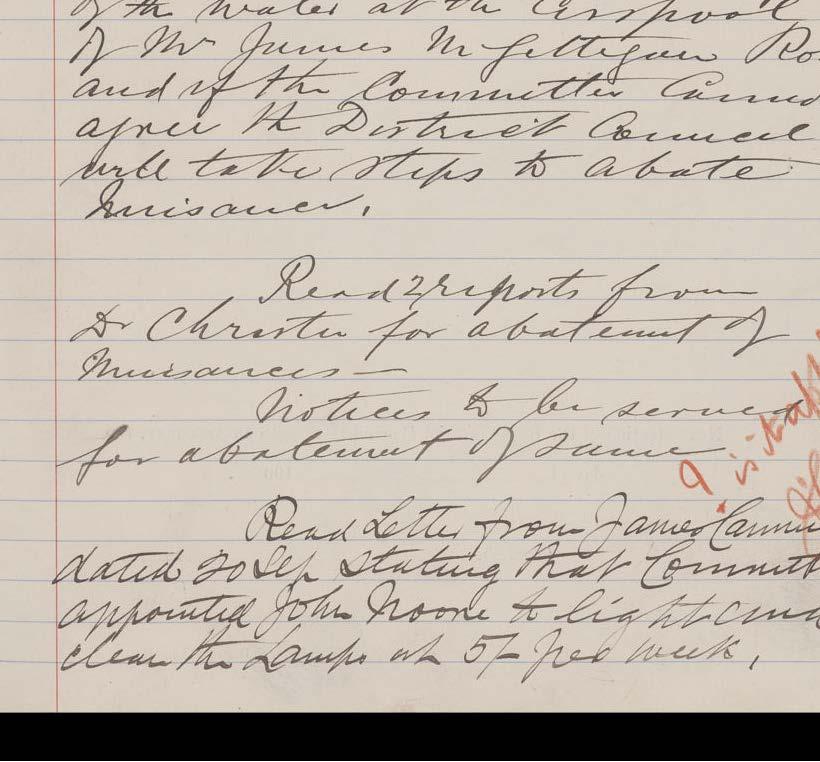 of the water at the Cesspool
of Mr James McGettigan
and if the Committee
agree the District Council
will take steps to abate
Nuisance.
Read 2 reports from
Dr Christie for abatement of
Nuisances —
Notices to be served
for abatement of same
Read Letter from James
dated 20 Sep stating that
appointed John Noone to light and
clean the Lamps at 5/- per week.